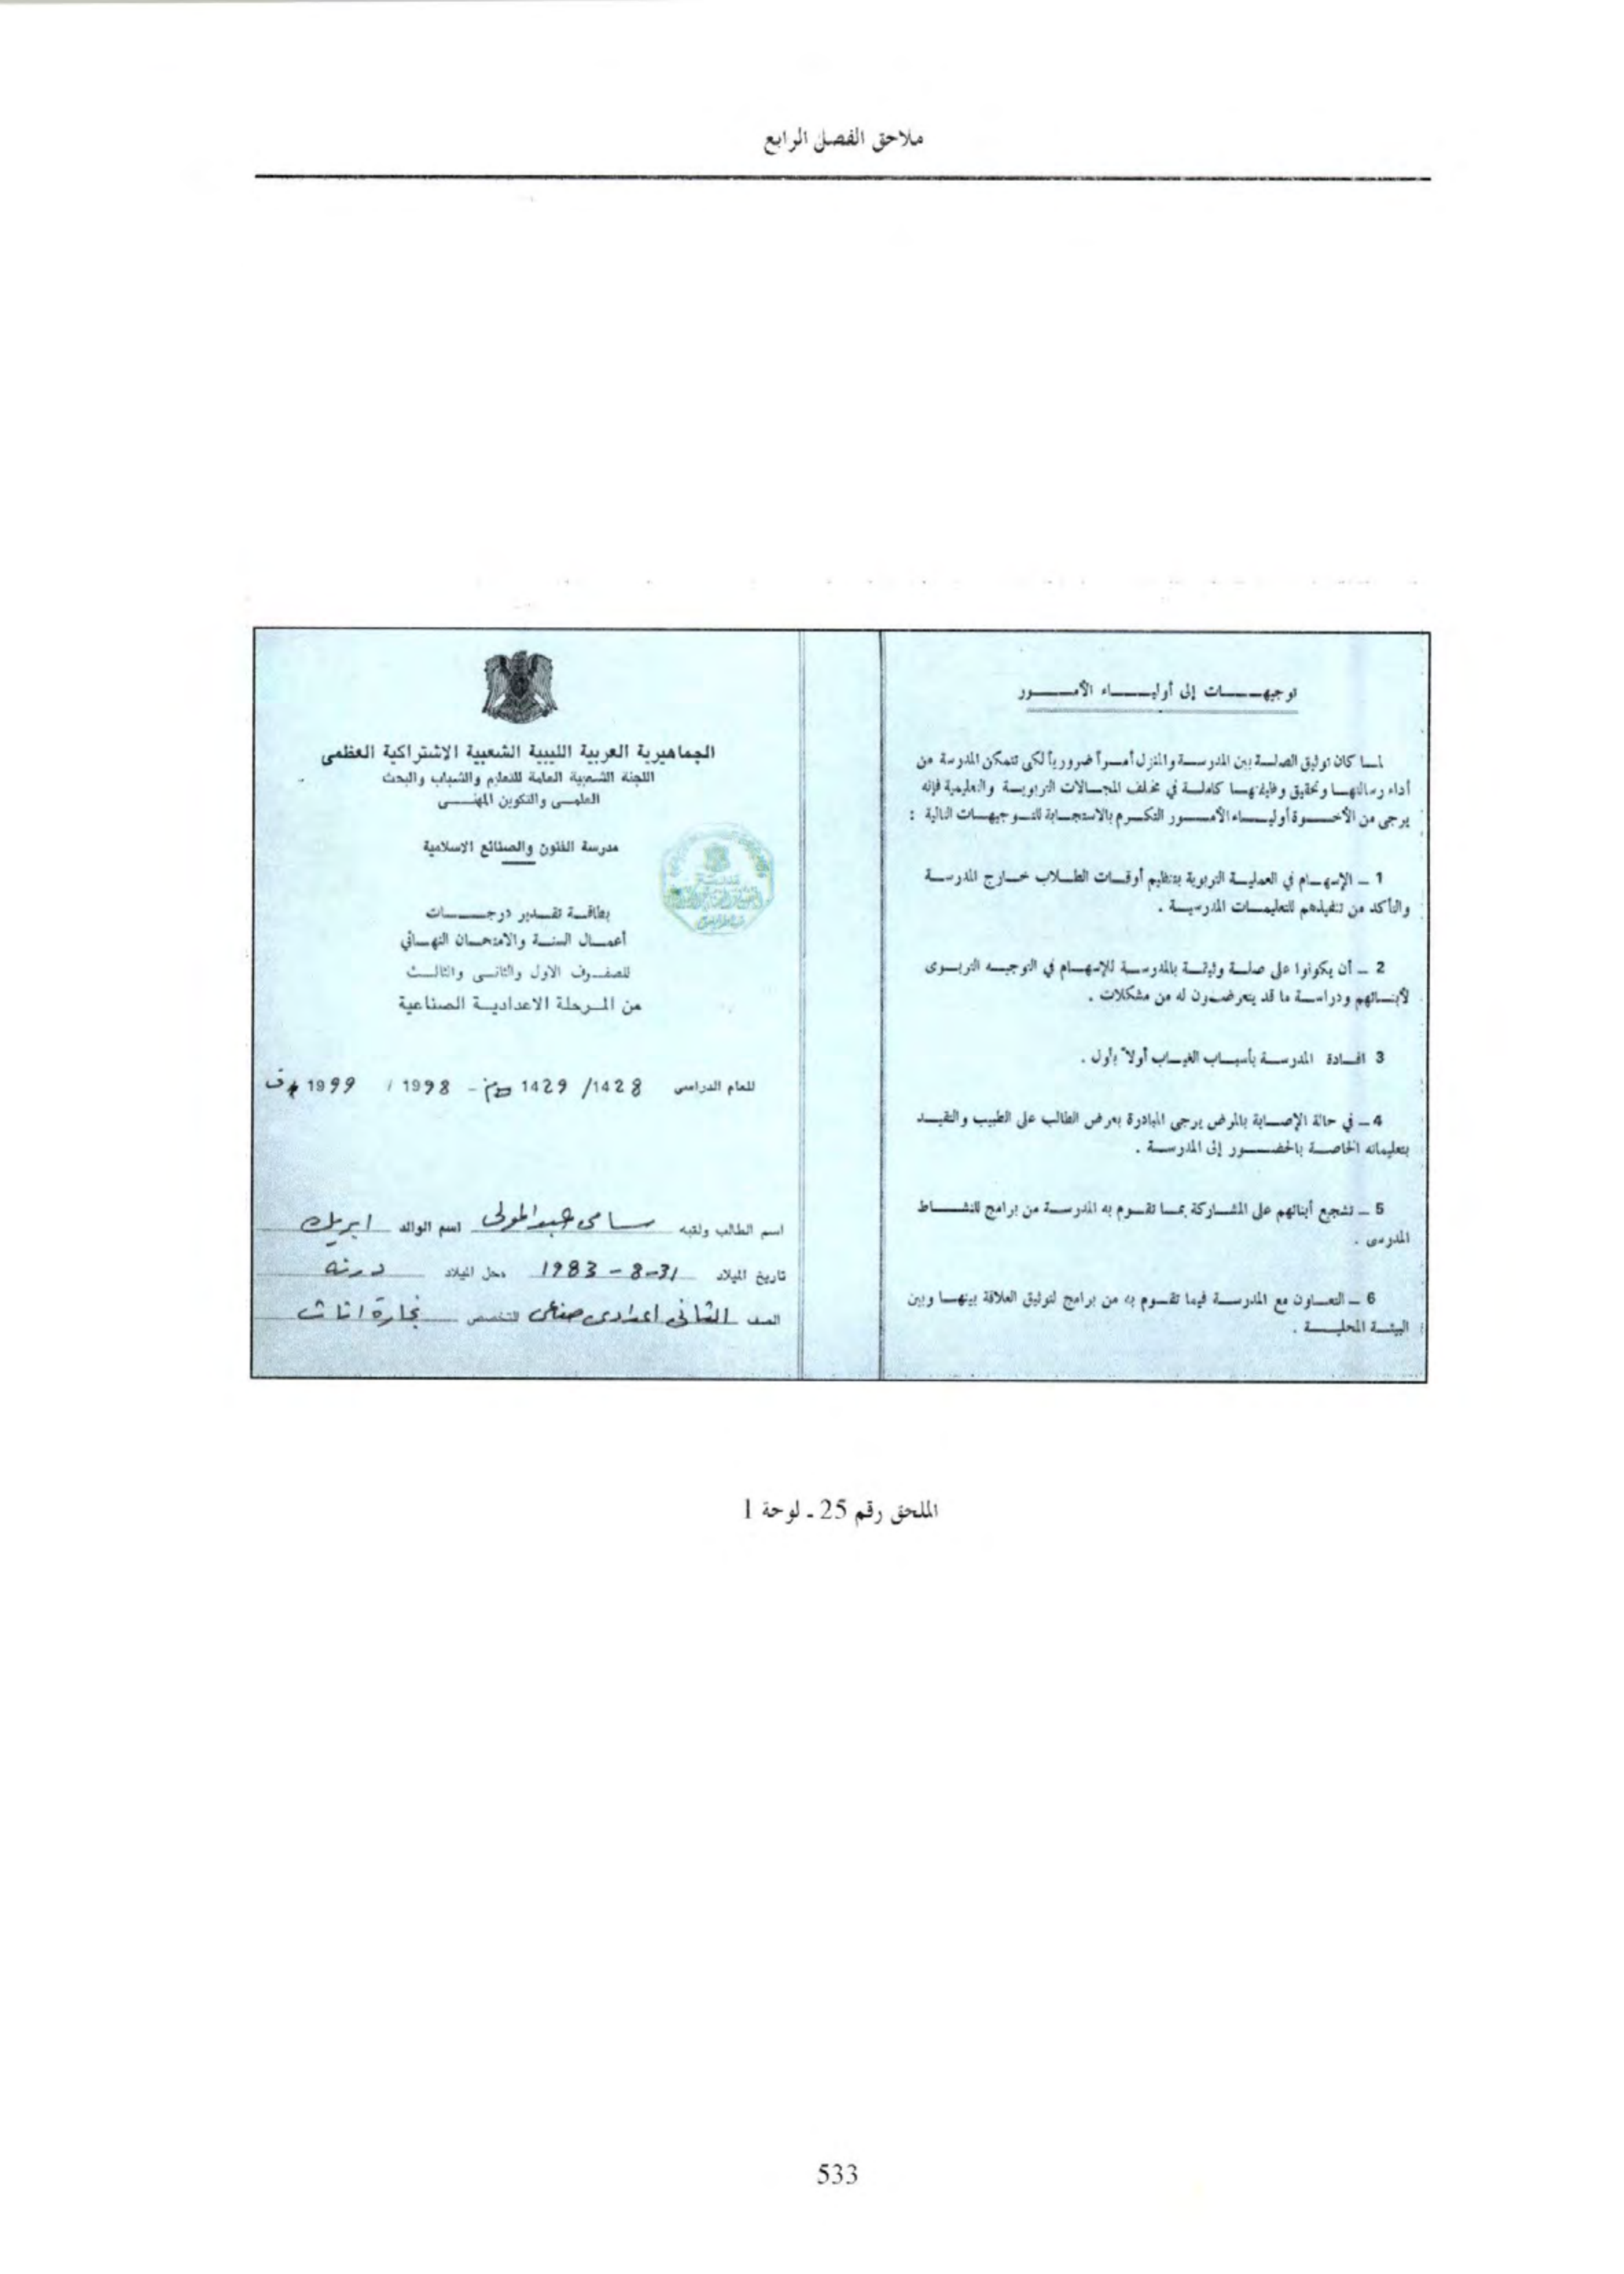 ملاحق الفصل الرابع
توجيهات إلى أولياء الأمور
لما كان توثيق الصلة بين المدرسة والمنزل أمراً ضرورياً لكى تتمكن المدرسة من
أداء رسالتها وتحقيق وظيفتها كاملة في مختلف المجالات التربوية والتعليمية فإنه
يرجى من الأخوة أولياء الأمور التكرم بالاستجابة للتوجيهات التالية :
1 ـ الإسهام في العملية التربوية بتنظيم أوقات الطلاب خارج المدرسة
والتأكد من تنفيذهم للتعليمات المدرسية .
2 ـ أن يكونوا على صلة وثيقة بالمدرسة للإسهام في التوجيه التربوى
لأبنائهم ودراسة ما قد يتعرضون له من مشكلات .
3 افادة المدرسة بأسباب الغياب أولاً بأول .
4 ـ في حالة الإصابة بالمرض يرجى المبادرة بعرض الطالب على الطبيب والتقيد
بتعليماته الخاصة بالحضور إلى المدرسة .
5 ـ تشجيع أبنائهم على المشاركة بما تقوم به المدرسة من برامج للنشاط
المدرسى .
6 ـ التعاون مع المدرسة فيما تقوم به من برامج لتوثيق العلاقة بينها وبين
البيئة المحلية .
الجماهيرية العربية الليبية الشعبية الاشتراكية العظمى
اللجنة الشعبية العامة للتعليم والشباب والبحث
العلمى والتكوين المهنى
مدرسة الفنون والصنائع الاسلامية
بطاقة تقدير درجات
أعمال السنة والامتحان النهائي
للصفوف الاول والثانى والثالث
من المرحلة الاعدادية الصناعية
للعام الدراسى 1428/ 1429 - 1998 / 1999 ف
اسم الطالب ولقبه سامى عبدالمولى اسم الوالد ابريك
تاريخ الميلاد 31-8-1983 محل الميلاد درنه
الصف الثانى اعدادى صناعى التخصص نجارة اثاث
الملحق رقم 25 ـ لوحة 1
533